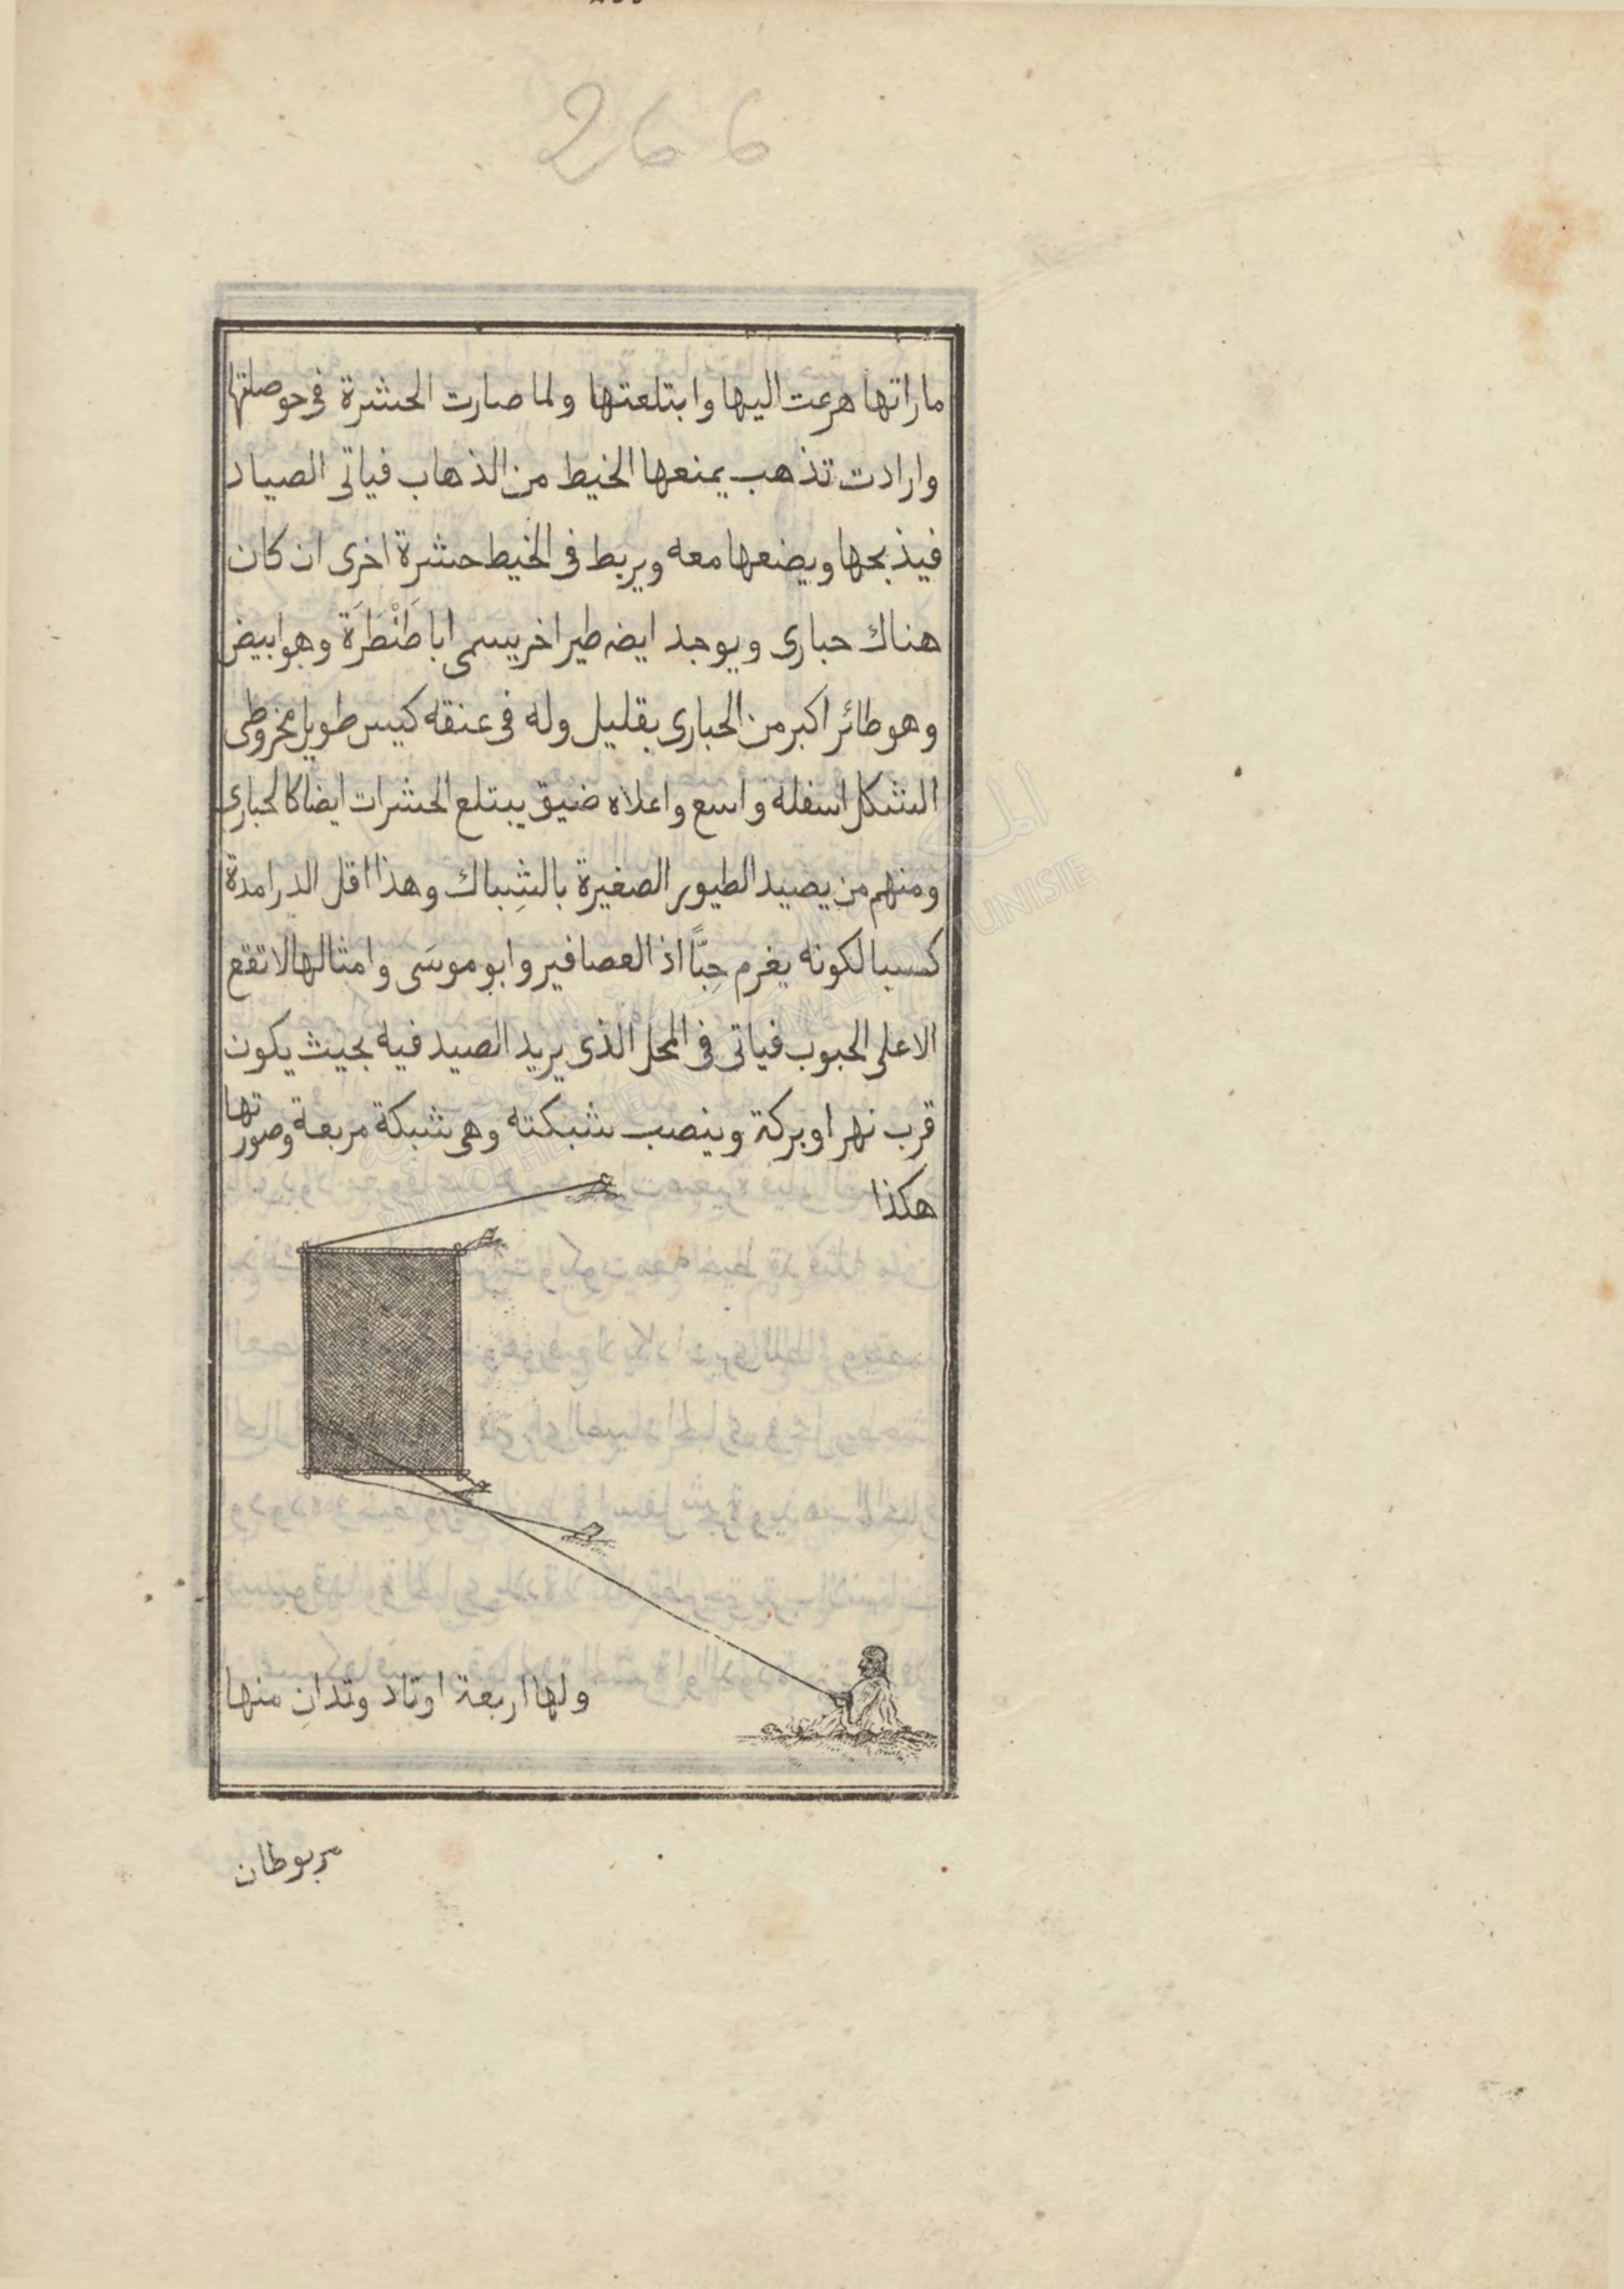 266
ماراتها هرعت اليها وابتلعتها ولما صارت الحشرة فى حوصلتها
وارادت تذهب يمنعها الخيط من الذهاب فياتى الصياد
فيذبحها ويضعها معه ويربط فى الخيط حشرة اخرى ان كان
هناك حبارى ويوجد ايضه طيرا خر يسمى ابا طَنْطَرَة وهو ابيض
وهو طائر اكبر من الحبارى بقليل وله فى عنقه كيس طويل مخروطى
الشكل اسفله واسع واعلاه ضيق يبتلع الحشرات ايضا كالحبارى
ومنهم من يصيد الطيور الصغيرة بالشِباك وهذا اقل الدرامدة
كسبا لكونه يغرم حِبًّا اذ العصافير وابو موسَى وامثالها لا تقع
الا على الحبوب فياتى فى المحل الذى يريد الصيد فيه بحيث يكون
قرب نهر او بركة وينصب شبكته وهى شبكة مربعة وصورتها
هكذا
ولها اربعة اوتاد وتدانِ منها
مربوطان
BIBLIOTHEQUE NATIONALE DE TUNISIE